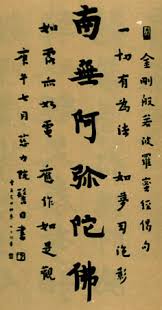 金剛般若波羅蜜經偈句
一切有為法 如夢幻泡影
南無阿弥陀佛
如露亦如電 應作如是觀
庚午七月